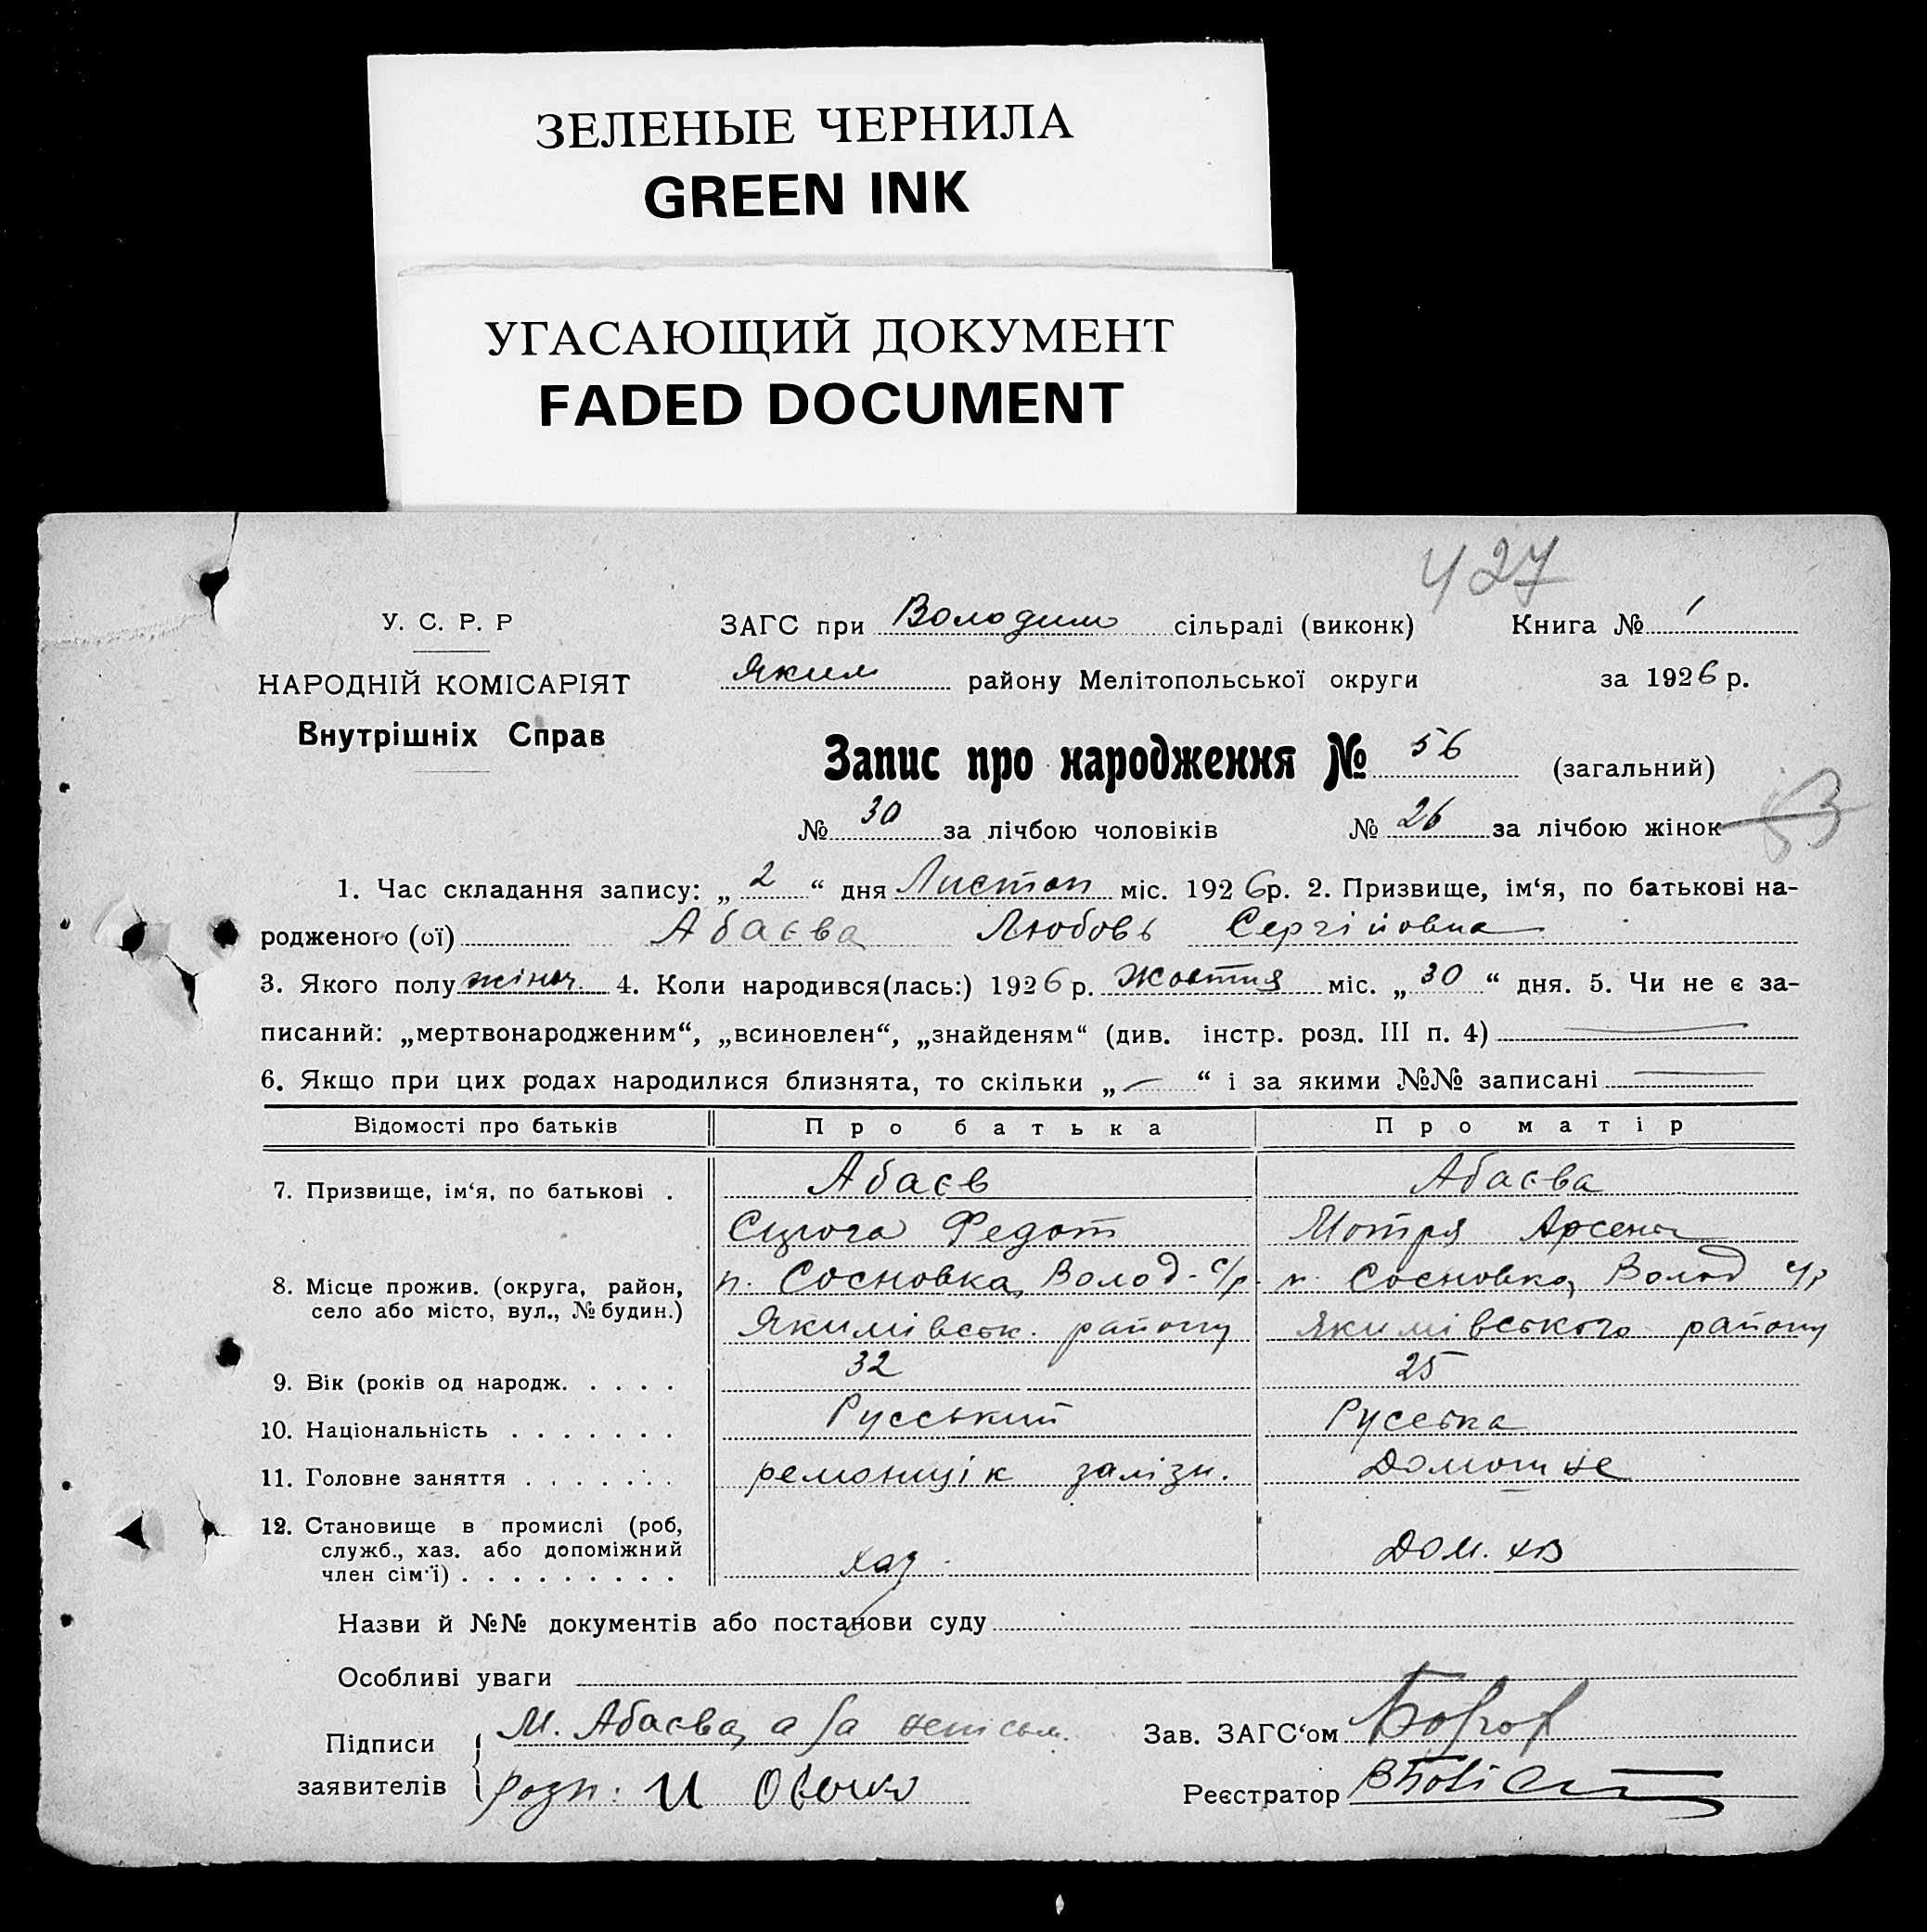 ЗЕЛЕНЫЕ ЧЕРНИЛА
GREEN INK
УГАСАЮЩИЙ ДОКУМЕНТ
FADED DOCUMENT
427
У. С. Р. Р
НАРОДНІЙ КОМІСАРІЯТ
Внутрішніх Справ
ЗАГС при Володим сільраді (виконк) Книга № 1
Яким району Мелітопольської округи за 1926 р.
Запис про народження № 56 (загальний)
№ 30 за лічбою чоловіків № 26 за лічбою жінок
1. Час складання запису: „ 2 “ дня Листоп міс. 1926р. 2. Призвище, ім‘я, по батькові на-
родженого (ої) Абаєва Любовь Сергійовна
3. Якого полу жіноч. 4. Коли народився(лась:) 1926 р. Жовтня міс. „ 30 “ дня. 5. Чи не є за-
писаний: „мертвонародженим“, „всиновлен“, „знайденям“ (див. інстр. розд. III п. 4)
6. Якщо при цих родах народилися близнята, то скільки „ — “ і за якими №№ записані
Відомості про батьків Про батька Про матір
7. Призвище, ім‘я, по батькові . Абаєв Абаєва
Федот Мотря Арсен
8. Місце прожив. (округа, район, п. Сосновка, Волод. с/р. п. Сосновка, Волод с/р
село або місто, вул., № будин.)
Якимівськ. району Якимівського району
9. Вік (років од народж. . . . . 32 25
10. Національність . . . . . . . Русський Руська
11. Головне заняття . . . . . . . ремонщік залізн.
12. Становище в промислі (роб,
служб., хаз. або допоміжний
член сім‘ї) . . . . . . . . . хаз. Дом. хв
Назви й №№ документів або постанови суду
Особливі уваги
Підписи заявителів М. Абаєва, а за неписьм.
розп: И
Зав. ЗАГС‘ом
Реєстратор